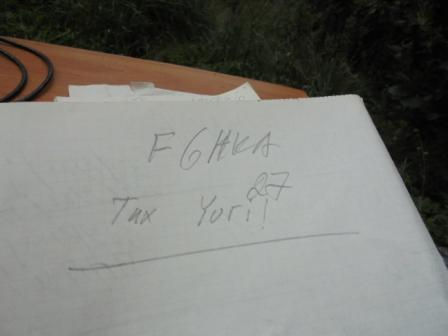 F6HKA
Tnx Yuri!!
27